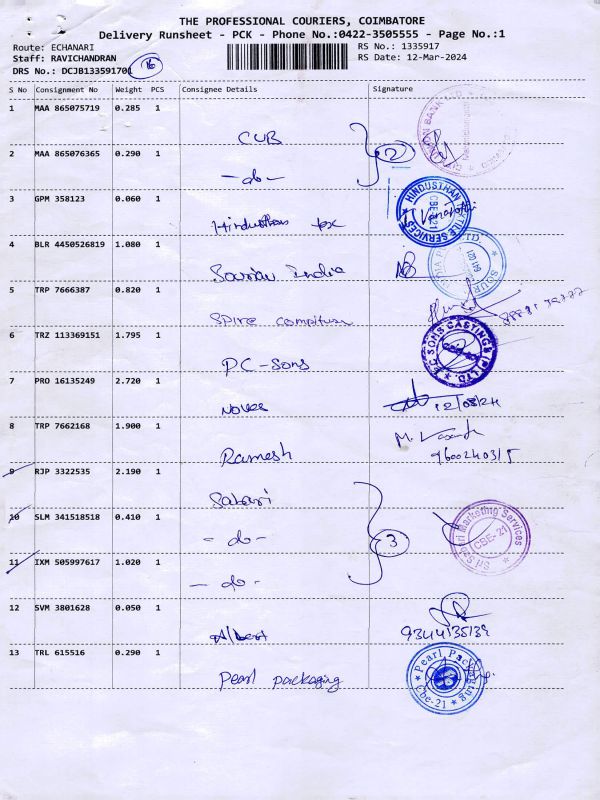 THE PROFESSIONAL COURIERS, COIMBATORE
Delivery Runsheet - PCK - Phone No.:0422-3505555 - Page No.:1
Route: ECHANARI
Staff: RAVICHANDRAN
DRS No.: DCJB133591701 16
RS No.: 1335917
RS Date: 12-Mar-2024
S No Consignment No Weight PCS Consignee Details Signature
1 MAA 865075719 0.285 1
CUB
2 MAA 865076365 0.290 1
2
- do -
3 GPM 358123 0.060 1
HINDUSTHAN TEXTILE SERVICES CBE-21
Hindusthan tex
4 BLR 4450526819 1.080 1
Souriau India
641 021
5 TRP 7666387 0.820 1
Spire
6 TRZ 113369151 1.795 1
P.C SONS CASTINGS (P) LTD.
PC-Sons
7 PRO 16135249 2.720 1
12/03/24
8 TRP 7662168 1.900 1
M.
Ramesh
9600240315
9 RJP 3322535 2.190 1
Sabari
10 SLM 341518518 0.410 1
- do -
3
Sri Sabari Marketing Services CBE-21
11 IXM 505997617 1.020 1
- do -
12 SVM 3801628 0.050 1
Albert
9344135139
13 TRL 615516 0.290 1
Pearl Packaging Cbe-21
Pearl packaging